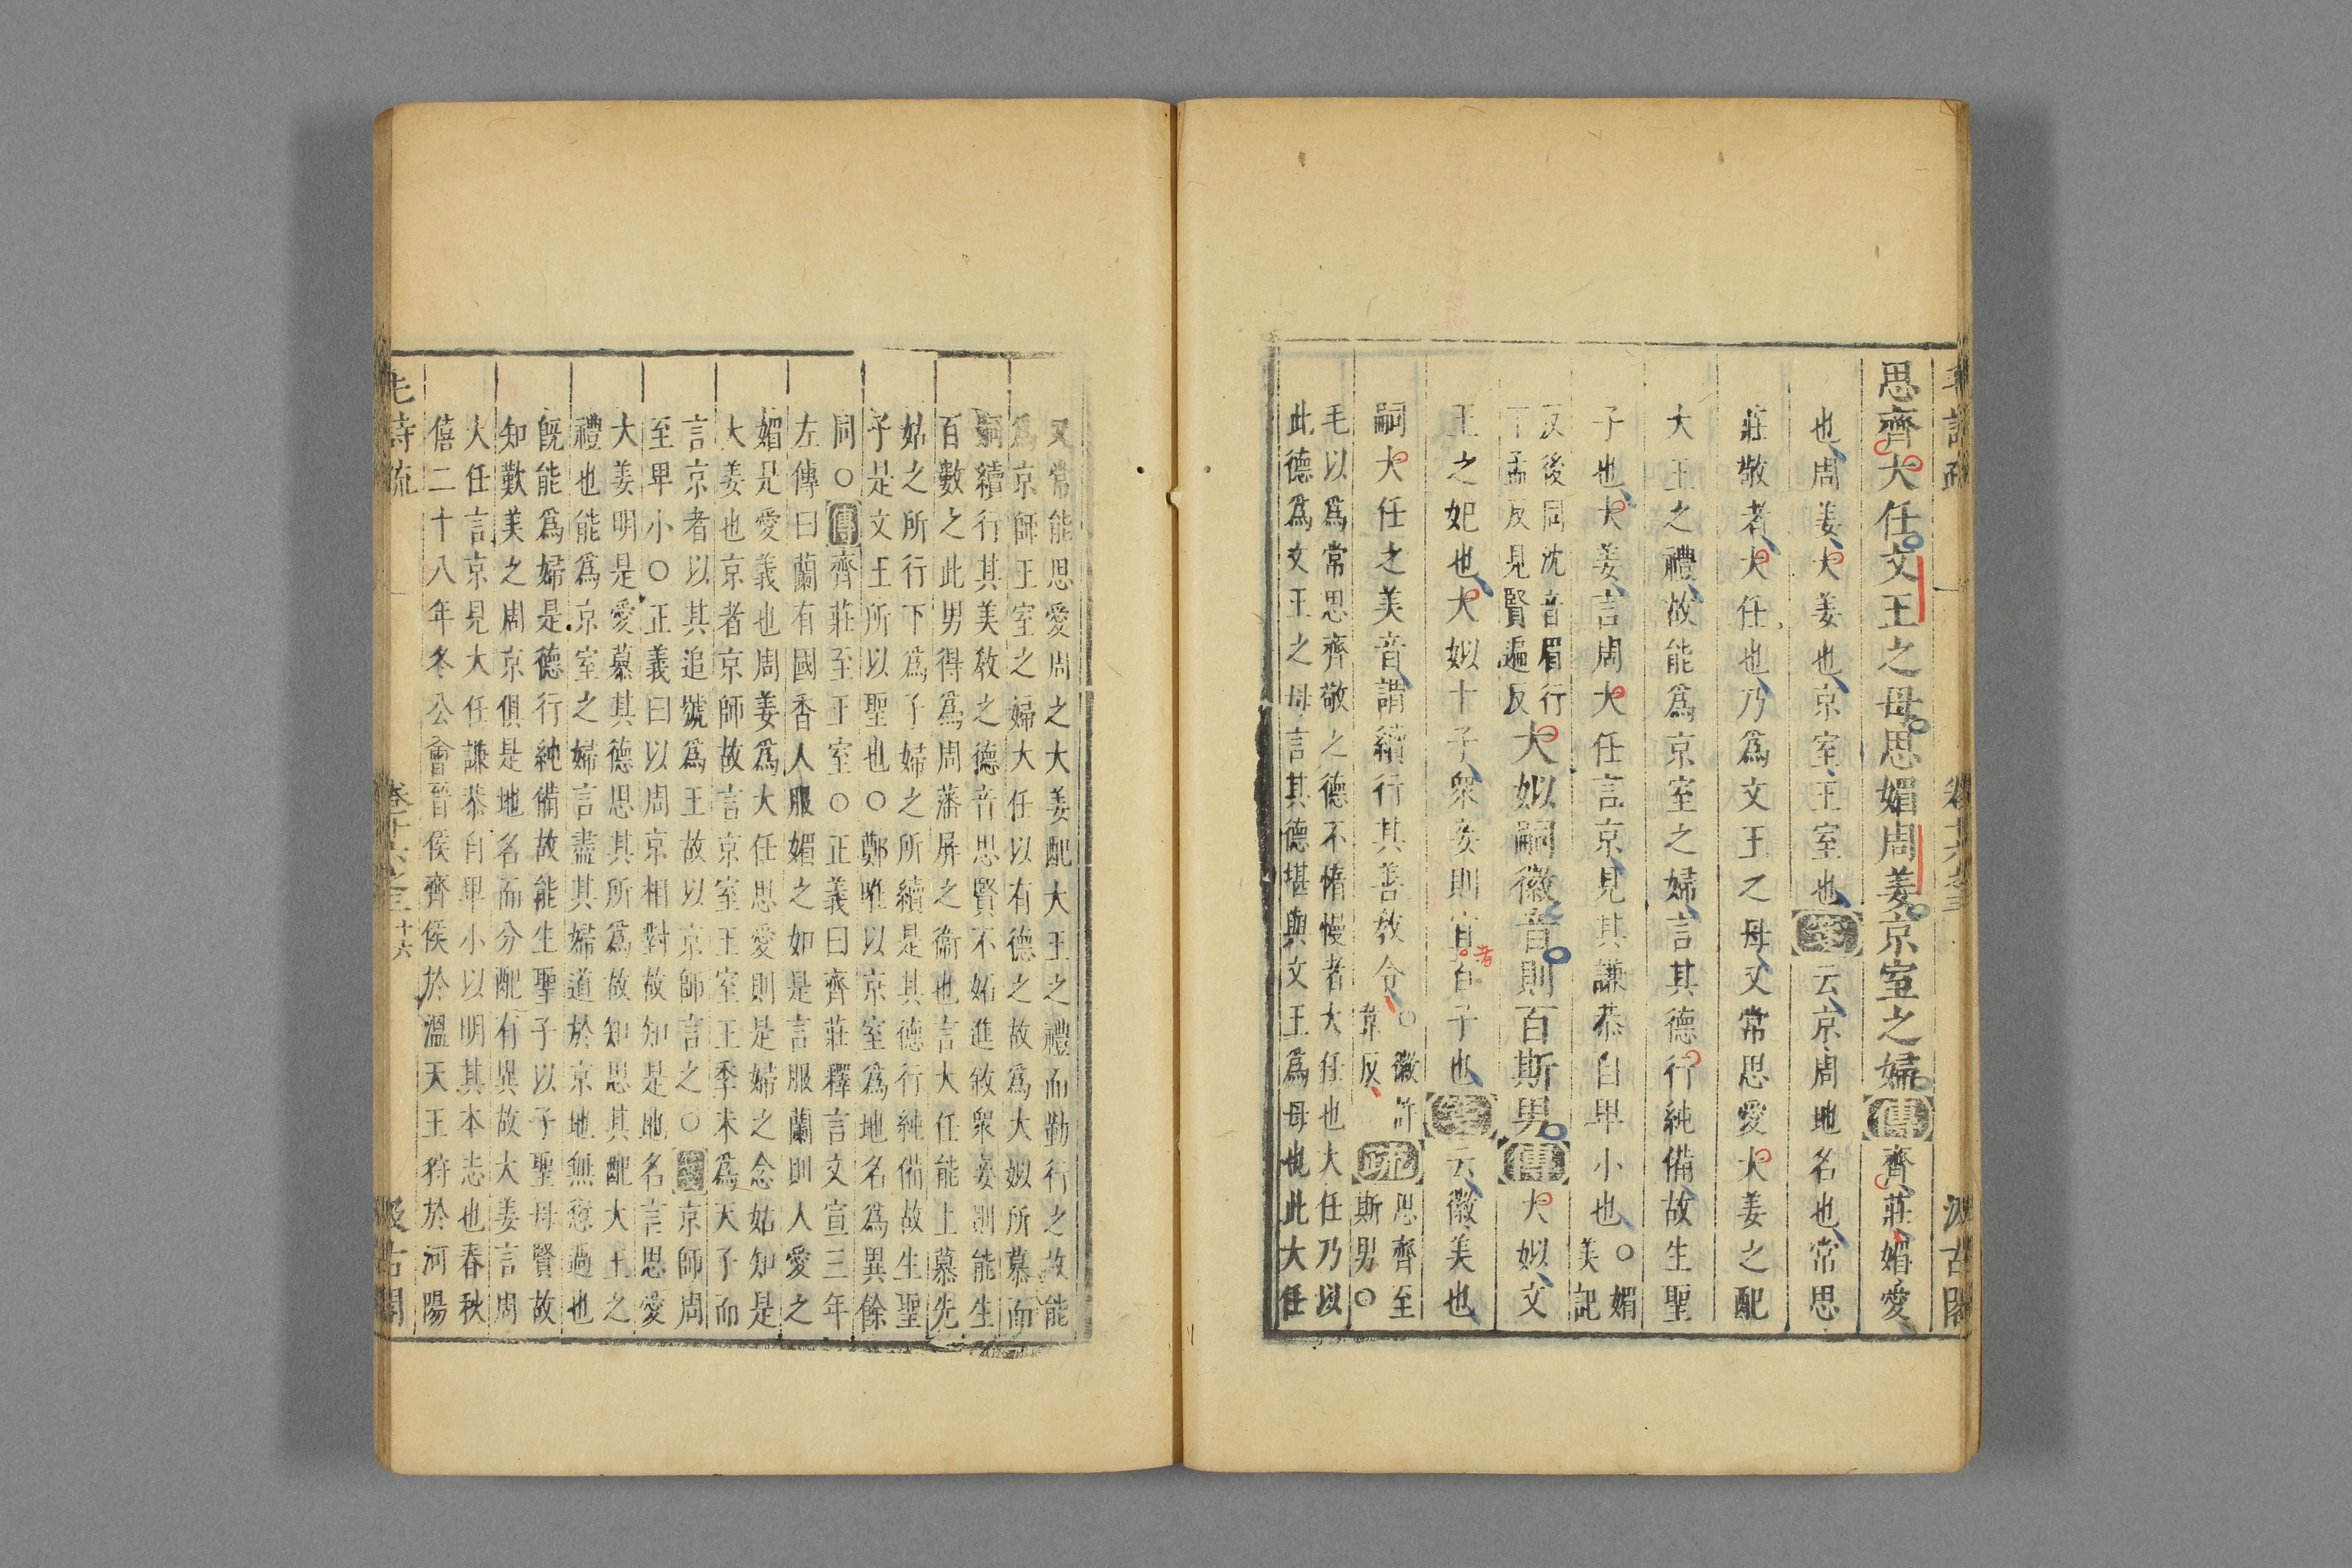 思齊大任文王之母思媚周姜京室之婦傳齊莊媚愛
也周姜大姜也京室王室也箋云京周地名也常思
莊敬者大任也乃爲文王之母又常思愛大姜之配
大王之禮故能爲京室之婦言其德行純備故生聖
子也大姜言周大任言京見其謙恭自卑小也○媚美記
反後同沈音眉行下孟反見賢遍反大姒嗣徽音則百斯男傳大姒文
王之妃也大姒十子衆妾則宜百子也箋云徽美也
者
嗣大任之美音謂續行其善敎令○徽許韋反疏思齊至斯男○
毛以爲常思齊敬之德不惰慢者大任也大任乃以
此德爲文王之母言其德堪與文王爲母也此大任
汲古閣
又常能思愛周之大姜配大王之禮而勤行之故能
爲京師王室之婦大任以有德之故爲大姒所慕而
嗣續行其美敎之德音思賢不妬進敘衆妾則能生
百數之此男得爲周藩屏之衞也言大任能上慕先
姑之所行下爲子婦之所續是其德行純備故生聖
子是文王所以聖也○鄭唯以京室爲地名爲異餘
同○傳齊莊至王室○正義曰齊莊釋言文宣三年
左傳曰蘭有國香人服媚之如是言服蘭則人愛之
媚是愛義也周姜爲大任思愛則是婦之念姑知是
大姜也京者京師故言京室王室王季未爲天子而
言京者以其追號爲王故以京師言之○箋京師周
至卑小○正義曰以周京相對故知是地名言思愛
大姜明是愛慕其德思其所爲故知思其配大王之
禮也能爲京室之婦言盡其婦道於京地無愆過也
旣能爲婦是德行純備故能生聖子以子聖母賢故
知歎美之周京俱是地名而分配有異故大姜言周
大任言京見大任謙恭自卑小以明其本志也春秋
僖二十八年冬公會晉侯齊侯於溫天王狩於河陽
毛詩疏 卷十六之三 十六 汲古閣